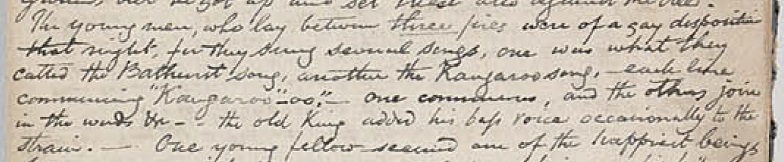 ground, but he got up and set these also against the tree.
The young men, who lay between three fires were of a gay disposition
that night, for they sung several songs, one was what they
called the Bathurst song, another the Kangaroo song, – each line
commencing "Kangaroo-oo," – one commences, and the others join
in the words &c – – the old King added his bass voice occasionally to the
strain. — One young fellow seemed one of the happiest beings